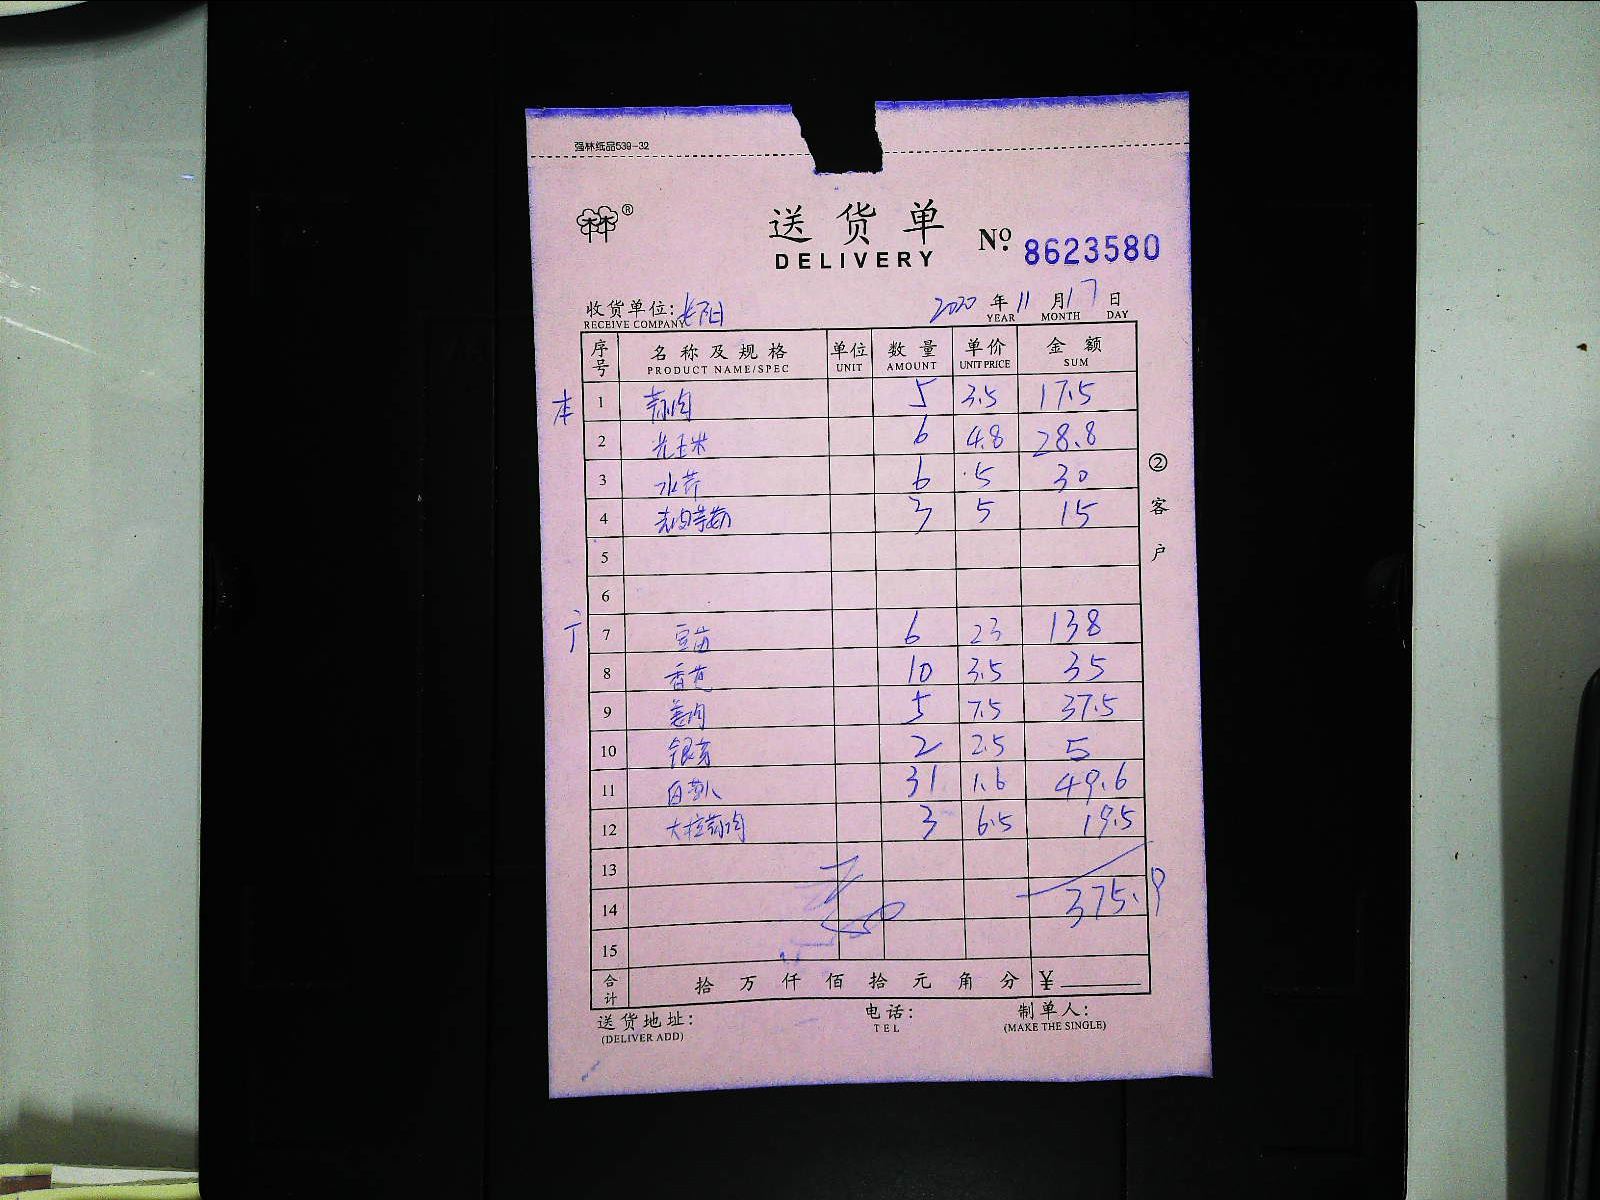 强林纸品539-32
林®
送货单
DELIVERY
No. 8623580
收货单位: 长阳 2020年11月17日
RECEIVE COMPANY YEAR MONTH DAY
序号 名称及规格 单位 数量 单价 金额
PRODUCT NAME/SPEC UNIT AMOUNT UNIT PRICE SUM
本 1 5 3.5 17.5
2 光玉米 6 4.8 28.8
3 水芹 6 5 30
4 3 5 15
5
6
7 豆苗 6 23 138
8 香芭 10 3.5 35
9 姜肉 5 7.5 37.5
10 银芽 2 2.5 5
11 31 1.6 49.6
12 3 6.5 19.5
13
14 375.9
15
合计 拾万仟佰拾元角分 ¥
②客户
送货地址: 电话: 制单人:
(DELIVER ADD) TEL (MAKE THE SINGLE)